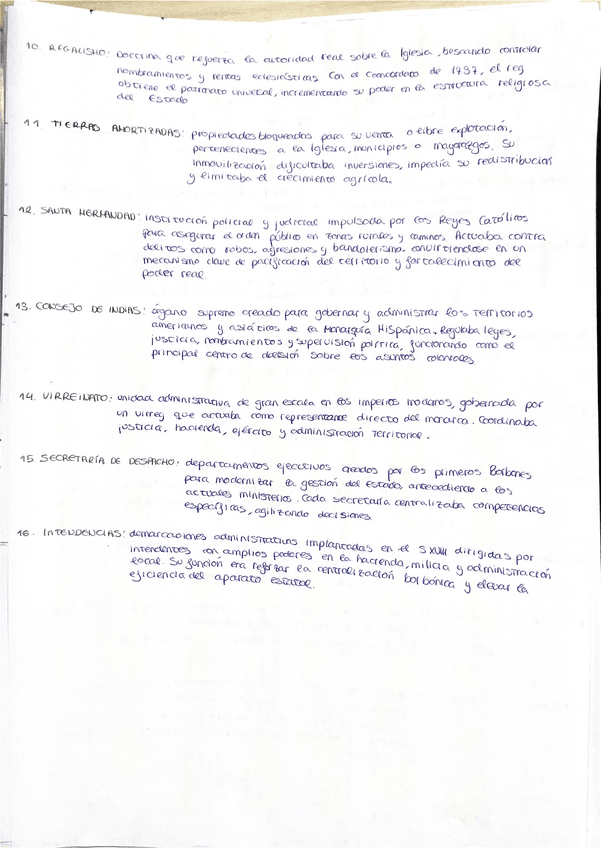 10. REGALISMO: Doctrina que refuerza la autoridad real sobre la Iglesia, buscando controlar
nombramientos y rentas eclesiásticas. Con el Concordato de 1737, el rey
obtiene el patronato universal, incrementando su poder en la estructura religiosa
del Estado
11 TIERRAS AMORTIZADAS: propiedades bloqueadas para su venta o libre explotación,
pertenecientes a la Iglesia, municipios o mayorazgos. Su
inmovilización dificultaba inversiones, impedía su redistribución
y limitaba el crecimiento agrícola.
12. SANTA HERMANDAD: institución policial y judicial impulsada por los Reyes Católicos
para asegurar el orden público en zonas rurales y caminos. Actuaba contra
delitos como robos, agresiones y bandolerismo. convirtiendose en un
mecanismo clave de pacificación del territorio y fortalecimiento del
poder real.
13. CONSEJO DE INDIAS: órgano supremo creado para gobernar y administrar los territorios
americanos y asiáticos de la Monarquía Hispánica. Regulaba leyes,
justicia, nombramientos y supervisión política, funcionando como el
principal centro de decisión sobre los asuntos coloniales.
14. VIRREINATO: unidad administrativa de gran escala en los imperios modernos, gobernada por
un virrey que actuaba como representante directo del monarca. Coordinaba
justicia, hacienda, ejército y administración territorial.
15. SECRETARÍA DE DESPACHO: departamentos ejecutivos creados por los primeros Borbones
para modernizar la gestión del estado, antecediendo a los
actuales ministerios. Cada secretaría centralizaba competencias
específicas, agilizando decisiones.
16. INTENDENCIAS: demarcaciones administrativas implantadas en el S XVIII dirigidas por
intendentes con amplios poderes en la hacienda, milicia y administración
local. Su función era reforzar la centralización borbónica y elevar la
eficiencia del aparato estatal.